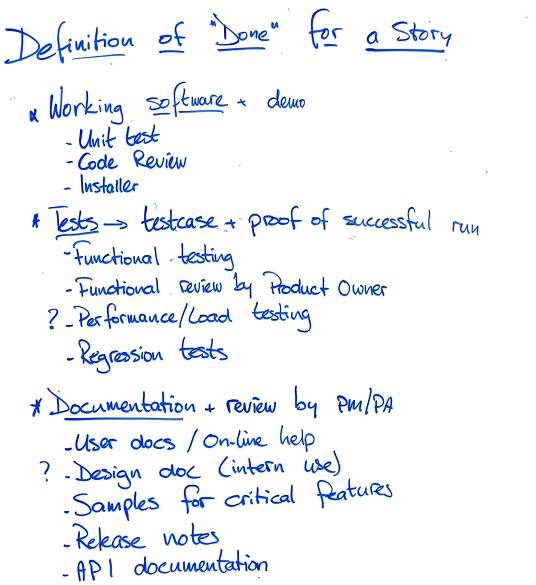 Definition of "Done" for a Story
* Working software + demo
- Unit test
- Code Review
- Installer
* Tests → testcase + proof of successful run
- Functional testing
- Functional review by Product Owner
? - Performance/Load testing
- Regression tests
* Documentation + review by PM/PA
- User docs / On-line help
? - Design doc (intern use)
- Samples for critical features
- Release notes
- API documentation